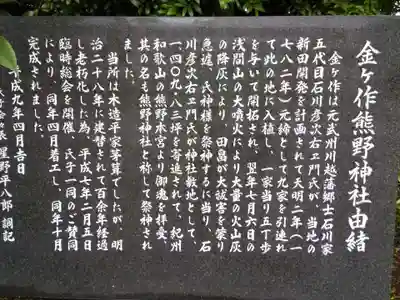 金ヶ作熊野神社由緒
金ヶ作は元武州川越藩郷士石川家
五代目石川彦次右ヱ門氏が、当地の
新田開発を計画されて天明二年（一
七八二年）元締として九家を引連れ
て此の地に入植し、一家当り五丁歩
を与いて開拓され、翌年七月六日の
浅間山の大噴火により大量の火山灰
の降灰により、田畠が大被害を蒙り
急遽、氏神様を祭神するに当り、石
川彦次右ヱ門氏が神社敷地として、
一、四〇九・八三坪を寄進されて、紀州
和歌山の熊野本宮より御魂を拝受、
其の名も熊野神社と称して祭神され
ました。
当所は木造平家茅葺でしたが、明
治二十八年に建替されて百余年経過
し老朽化した為、平成八年二月五日
臨時総会を開催、氏子一同のご賛同
により、同年四月着工し、同年十月
完成されました。
平成九年四月吉日
星野平八郎 調記